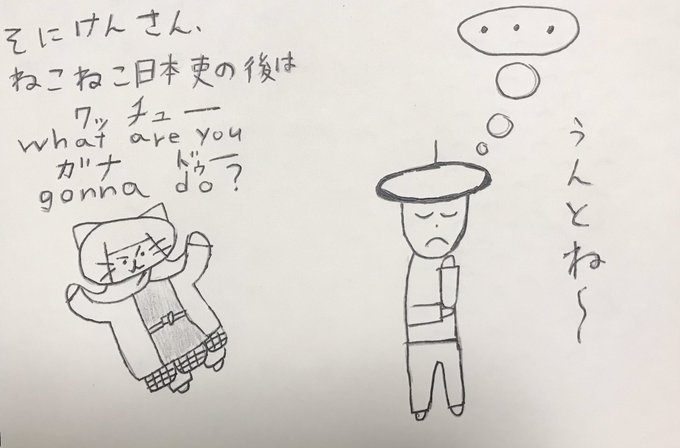 そにけんさん、
ねこねこ日本史の後は
ワッ チュー
what are you
ガナ ドゥー
gonna do?
うんとね〜
・・・